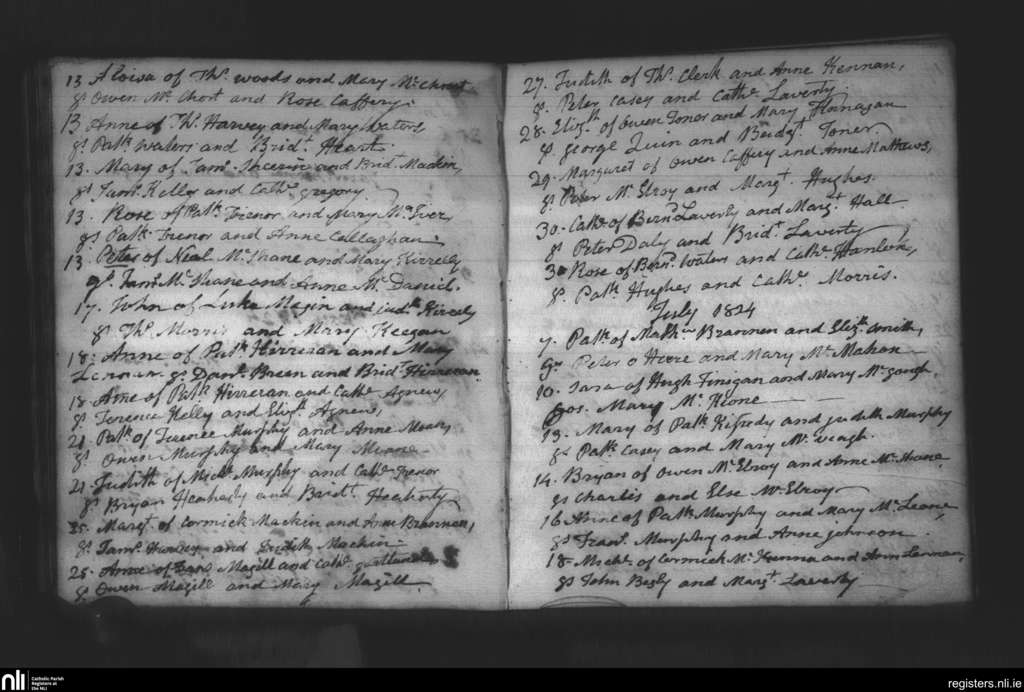 13 Aloisa of Thos. woods and Mary McChort
gs Owen McChort and Rose Caffery.
13 Anne of Thos. Harvey and Mary Waters
gs Patk. Waters and Bridt. Heart.
13. Mary of Jams. and Bridt. Mackin,
gs Jams. Kelly and Cathe. gregory
13. Rose of Patk. Trenor and Mary McIver,
gs Patk. Trenor and Anne Callaghan.
13. Peter of Neal McShane and Mary Kirrely
gs. Jams. McShane and Anne McDaniel.
17. John of Luke Megin and Judth. Kirrely
gs Thos. Morris and Mary Keegan
18. Anne of Patk. Hirreran and Mary
gs. Danl. Breen and Bridt. Hirreran.
18 Anne of Patk. Hirreran and Cathe. Agnew,
gs. Terence Kelly and Elizth. Agnew,
21. Patk. of Terence Murphy and Anne
gs. Owen Murphy and Mary
21. Judith of Michl. Murphy and Cathe. Trenor
gs Bryan Heaherty and Bridt. Heaherty
25. Margt. of Cormick Mackin and Anne Brannen,
gs. Jams. and Judith Mackin.
25. Anne of Magill and Cathe.
gs Owen Magill and Mary Magill.
27. Judith of Thos. Clerk and Anne Kennan,
gs. Peter Casey and Cathe. Laverty
28. Elizth. of Owen Toner and Mary Flanagan
gs. george Quin and Bridgt. Toner.
29. Margaret of Owen Caffery and Anne Mathews,
gs. Peter McElroy and Margt. Hughes.
30. Cathe. of Bernd. Laverty and Margt. Hall
gs Peter Daly and Bridt. Laverty
30 Rose of Bernd. Waters and Cathe. Hanlon,
gs. Patk. Hughes and Cathe. Morris.
July 1824
7. Patk. of Mathw. Brannen and Elizth. Smith,
gs Peter o Heere and Mary McMahon
10. Sara of Hugh Finigan and Mary
gos. Mary McKeone
13. Mary of Patk. Kifredy and judith Murphy
gs Patk. Casey and Mary McVeagh.
14. Bryan of Owen McElroy and Anne McShane
gs Charlis and Else McElroy
16 Anne of Patk. Murphy and Mary McLeane,
gs Frans. Murphy and Anne johnson.
18. Michl. of Cormick McKenna and Ann Lennan,
gs John and Margt. Laverty
nli
Catholic Parish
Registers at
the NLI
registers.nli.ie